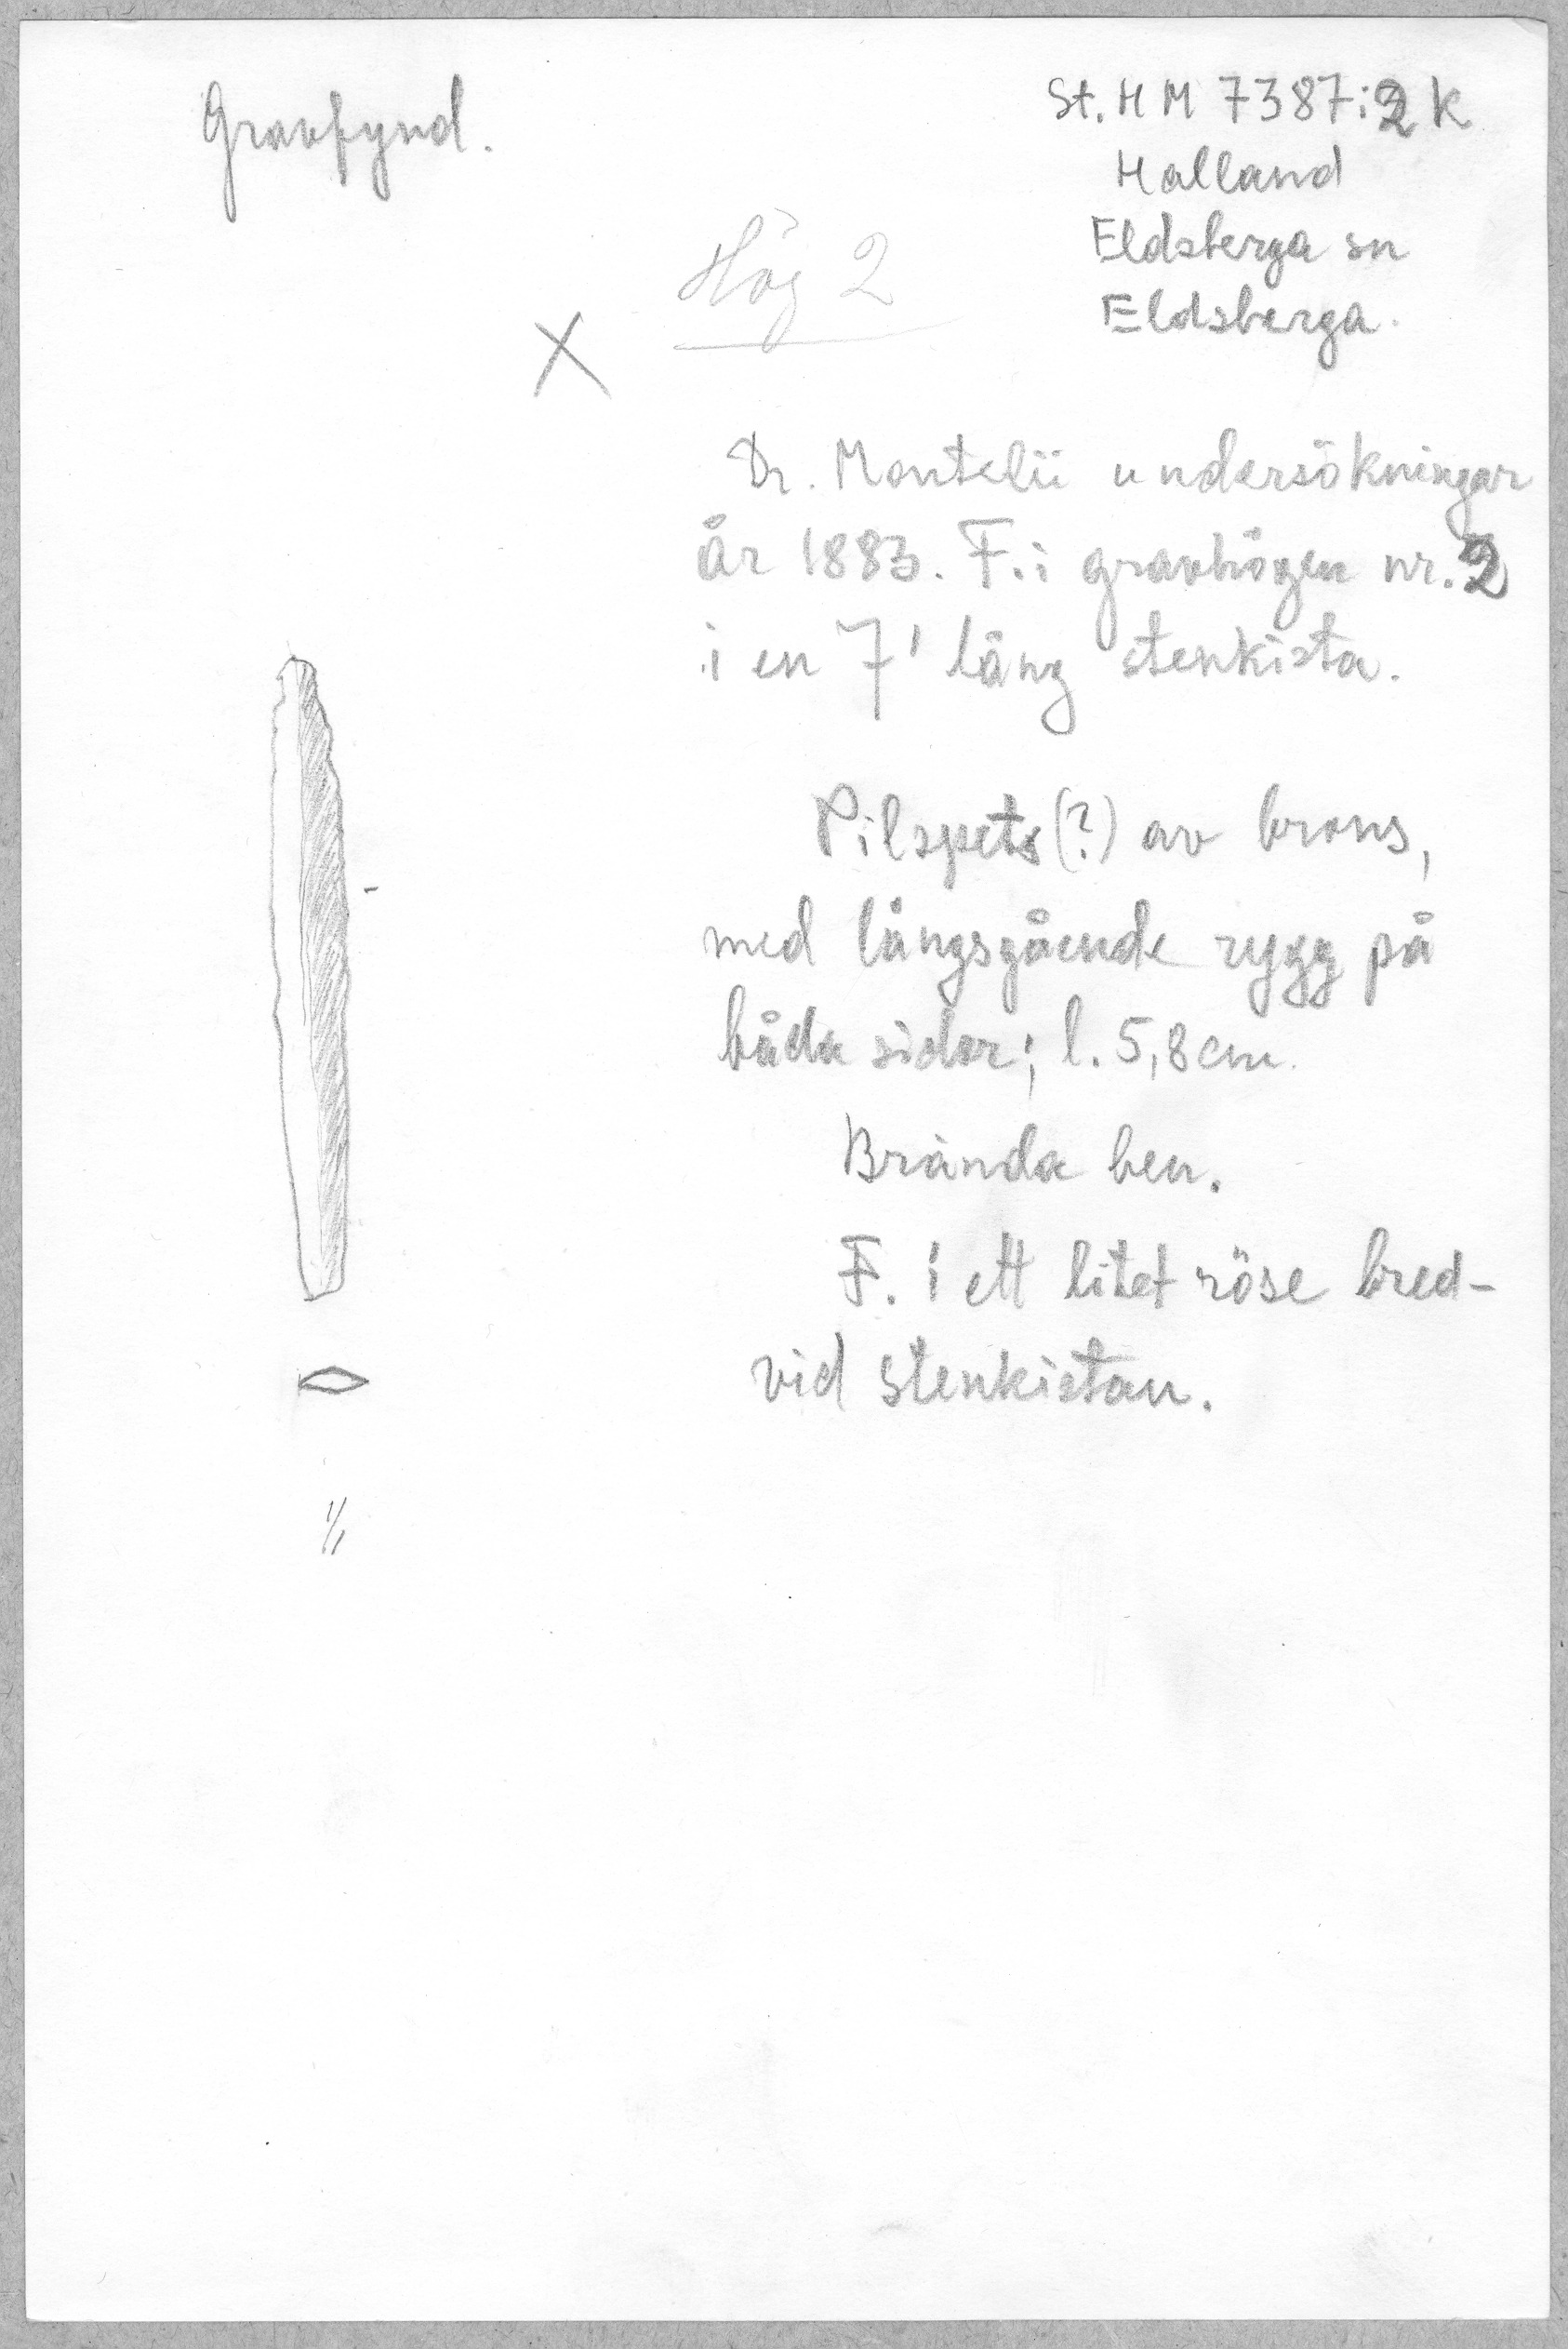 Gravfynd.
St. H M 7387:2 k
Halland
Eldsberga sn
Eldsberga.
Hög 2
X
Dr. Montelii undersökningar
år 1883. F. i gravhögen nr. 2
i en 7' lång stenkista.
Pilspets (?) av brons,
med långsgående rygg på
båda sidor; l. 5,8 cm.
Brända ben.
F. i ett litet röse bred-
vid stenkistan.
1/1